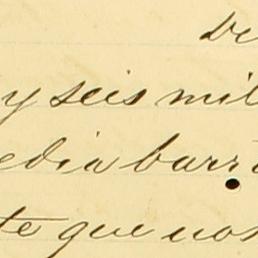 y seis mil
edia barr
te que nos